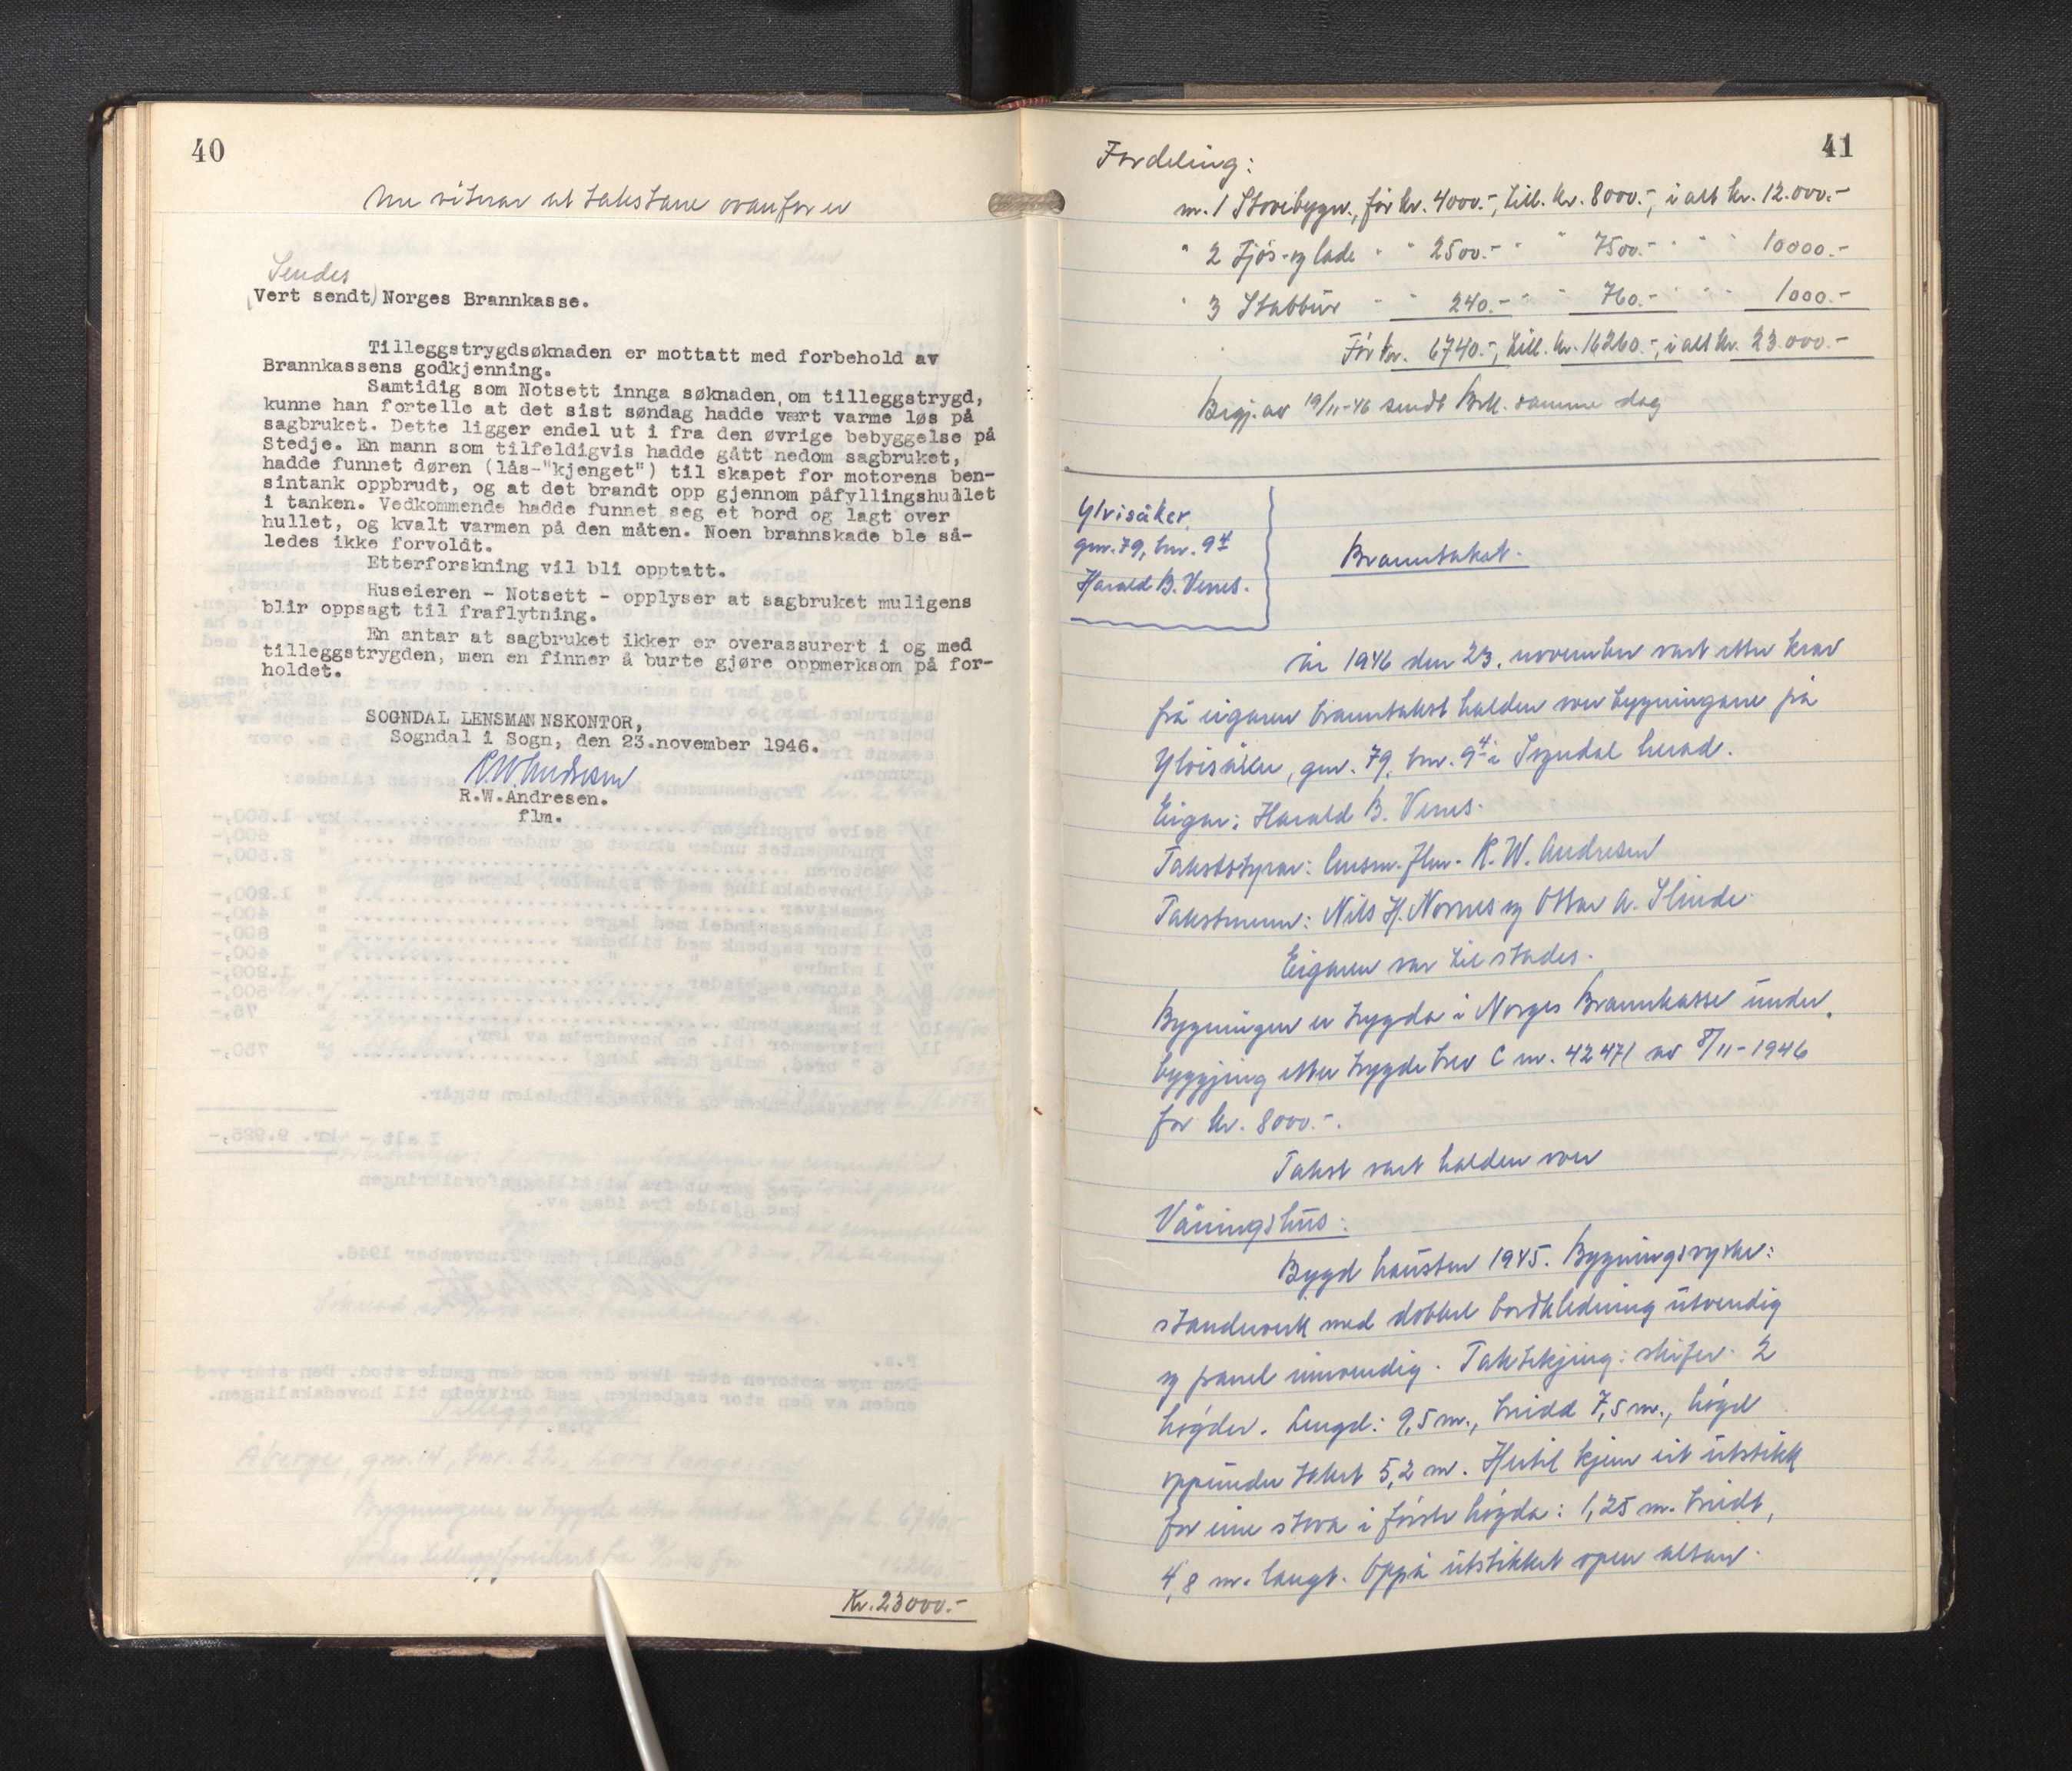 40
Me vitnar at takstane ovanfor er
Sendes
(Vert sendt) Norges Brannkasse.
Tilleggstrygdsøknaden er mottatt med forbehold av
Brannkassens godkjenning.
Samtidig som Notsett innga søknaden om tilleggstrygd,
kunne han fortelle at det sist søndag hadde vært varme løs på
sagbruket. Dette ligger endel ut i fra den øvrige bebyggelse på
Stedje. En mann som tilfeldigvis hadde gått nedom sagbruket,
hadde funnet døren (lås-"kjenget") til skapet for motorens ben-
sintank oppbrudt, og at det brandt opp gjennom påfyllingshullet
i tanken. Vedkommende hadde funnet seg et bord og lagt over
hullet, og kvalt varmen på den måten. Noen brannskade ble så-
ledes ikke forvoldt.
Etterforskning vil bli opptatt.
Huseieren - Notsett - opplyser at sagbruket muligens
blir oppsagt til fraflytning.
En antar at sagbruket ikker er overassurert i og med
tilleggstrygden, men en finner å burte gjøre oppmerksom på for-
holdet.
SOGNDAL LENSMANNSKONTOR,
Sogndal i Sogn, den 23.november 1946.
R.W. Andresen
R.W.Andresen.
flm.
Kr. 23000.-
41
Fordeling:
nr. 1 Stovebygn., før kr. 4000.-, till. kr. 8000.-, i alt kr. 12.000.-
" 2 Fjøs- og lade " " 2500.- " " 7500.- " " " 10000.-
" 3 Stabbur " " 240.- " " 760.- " " " 1000.-
Før kr. 6740.-, till. kr. 16260.-, i alt kr. 23.000.-
Begj. av 19/11-46 sendt Brk. samme dag
Ylvisåker,
gnr. 79, bnr. 94
Harald B. Venes.
Branntakst.
År 1946 den 23. november vart etter krav
frå eigaren branntakst halden over bygningane på
Ylvisåker, gnr. 79, bnr. 94 i Sogndal herad.
Eigar: Harald B. Venes.
Takststyrar: lensm. flm. R. W. Andresen
Takstmenn: Nils H. Nornes og Ottar A. Slinde.
Eigaren var til stades.
Bygningen er trygda i Norges Brannkasse under
byggjing etter trygdebrev C nr. 42471 av 8/11-1946
for kr. 8000.-.
Takst vart halden over
Våningshus:
Bygd hausten 1945. Bygningsmåte:
standverk med dobbel bordkledning utvendig
og panel innvendig. Taktekjing: skifer. 2
høgder. Lengd: 9,5 m., breidd 7,5 m., høgd
oppunder taket 5,2 m. Hertil kjem eit utstikk
for eine stova i første høgda: 1,25 m. breidt,
4,8 m. langt. Oppå utstikket open altan.